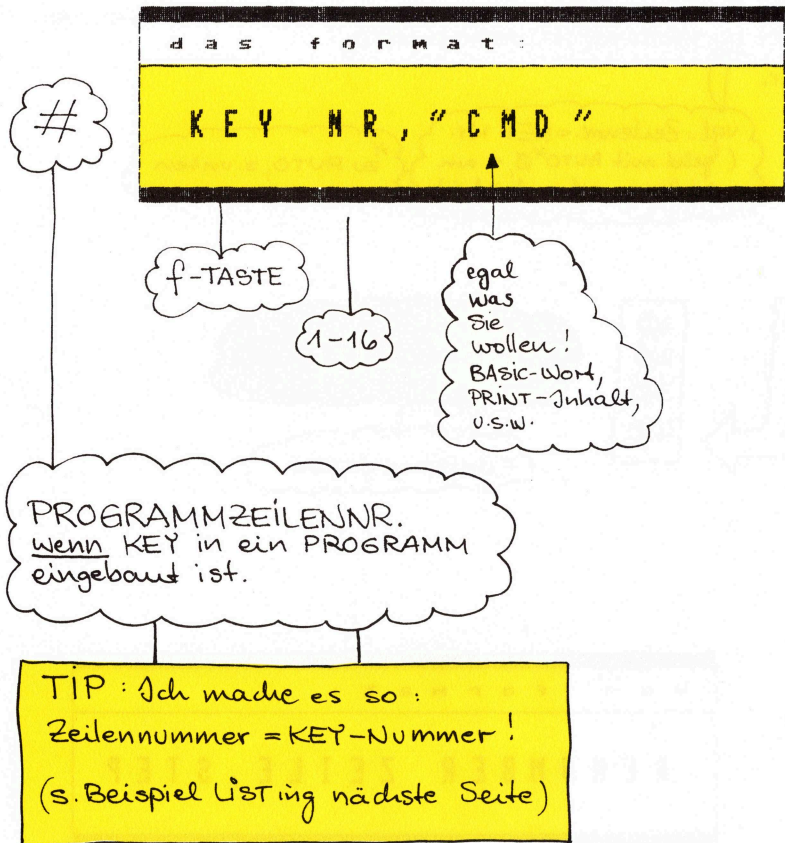 das format:
#
KEY NR,"CMD"
f-TASTE
1-16
egal
was
Sie
wollen!
BASiC-Wort,
PRiNT-Inhalt,
U.S.W.
PROGRAMMZEiLENNR.
wenn KEY in ein PROGRAMM
eingebaut ist.
TiP: Ich mache es so:
Zeilennummer = KEY-Nummer!
(s. Beispiel LiSTing nächste Seite)